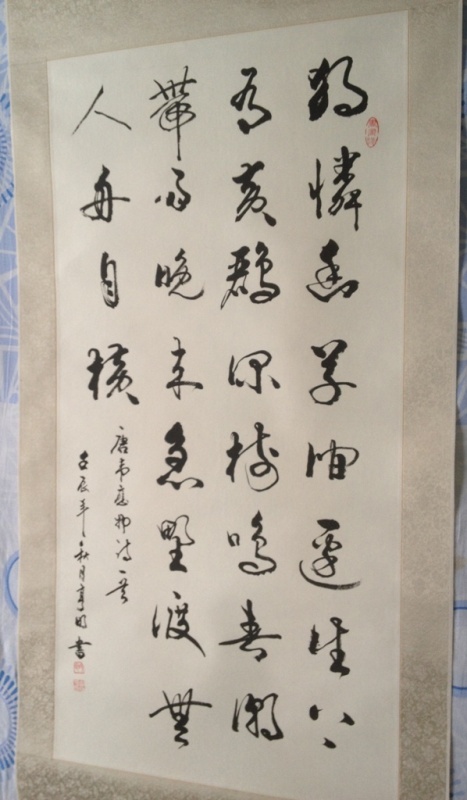 独憐幽草澗邊生上
有黄鸝深树鸣春潮
帶雨晚来急野渡無
人舟自横
唐韦應物诗一首
壬辰年秋月書